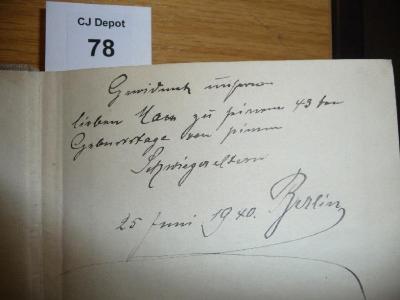 CJ Depot
78
Gewidmet unserem
lieben Hans zu seinem 43 ten
Geburtstage von seinen
Schwiegereltern
25 Juni 1940. Berlin